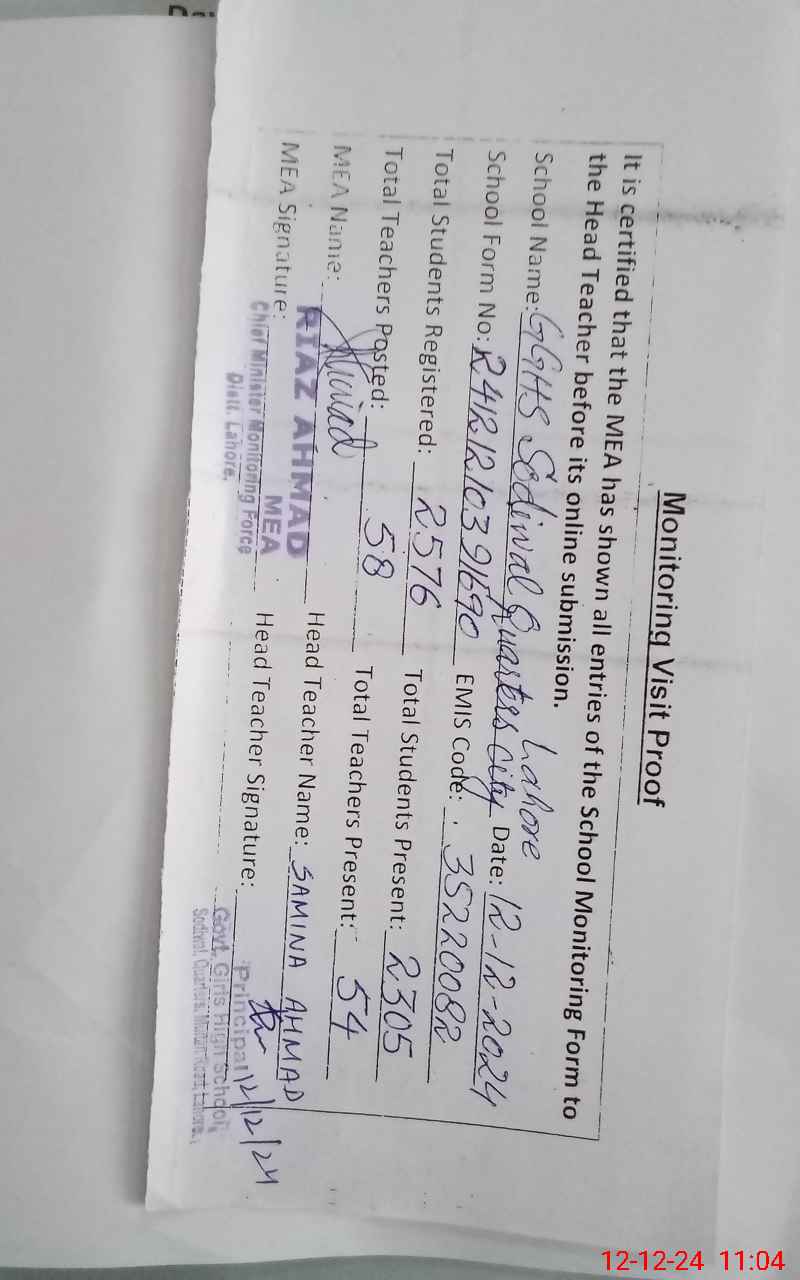 Monitoring Visit Proof
It is certified that the MEA has shown all entries of the School Monitoring Form to
the Head Teacher before its online submission.
School Name: GGHS Sodiwal Quarters City Lahore Date: 12-12-2024
School Form No: 24121210391690 EMIS Code: 35220082
Total Students Registered: 2576 Total Students Present: 2305
Total Teachers Posted: 58 Total Teachers Present: 54
MEA Name: RIAZ AHMAD Head Teacher Name: SAMINA AHMAD
MEA Signature: Head Teacher Signature:
MEA
Chief Minister Monitoring Force
Distt. Lahore.
Principal 12/12/24
Govt. Girls High School
Sodiwal, Quarters, Multan Road, Lahore.
12-12-24 11:04